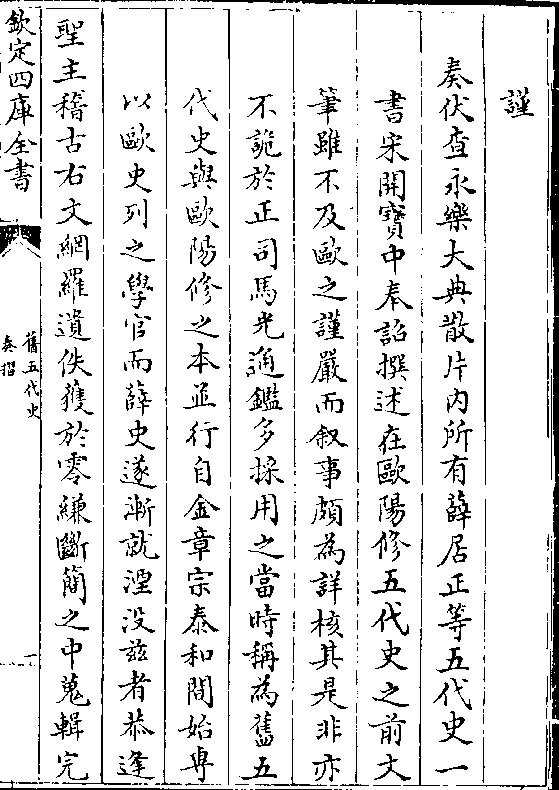 謹
奏伏查永樂大典散片内所有薛居正等五代史一
書宋開寶中奉詔撰述在歐陽修五代史之前文
筆雖不及歐之謹嚴而叙事頗為詳核其是非亦
不詭於正司馬光通鑑多採用之當時稱為舊五
代史與歐陽修之本並行自金章宗泰和間始專
以歐史列之學官而薛史遂漸就湮没兹者恭逢
聖主稽古右文網羅遺佚獲於零縑斷簡之中蒐輯完
欽定四庫全書
舊五代史
奏摺
一